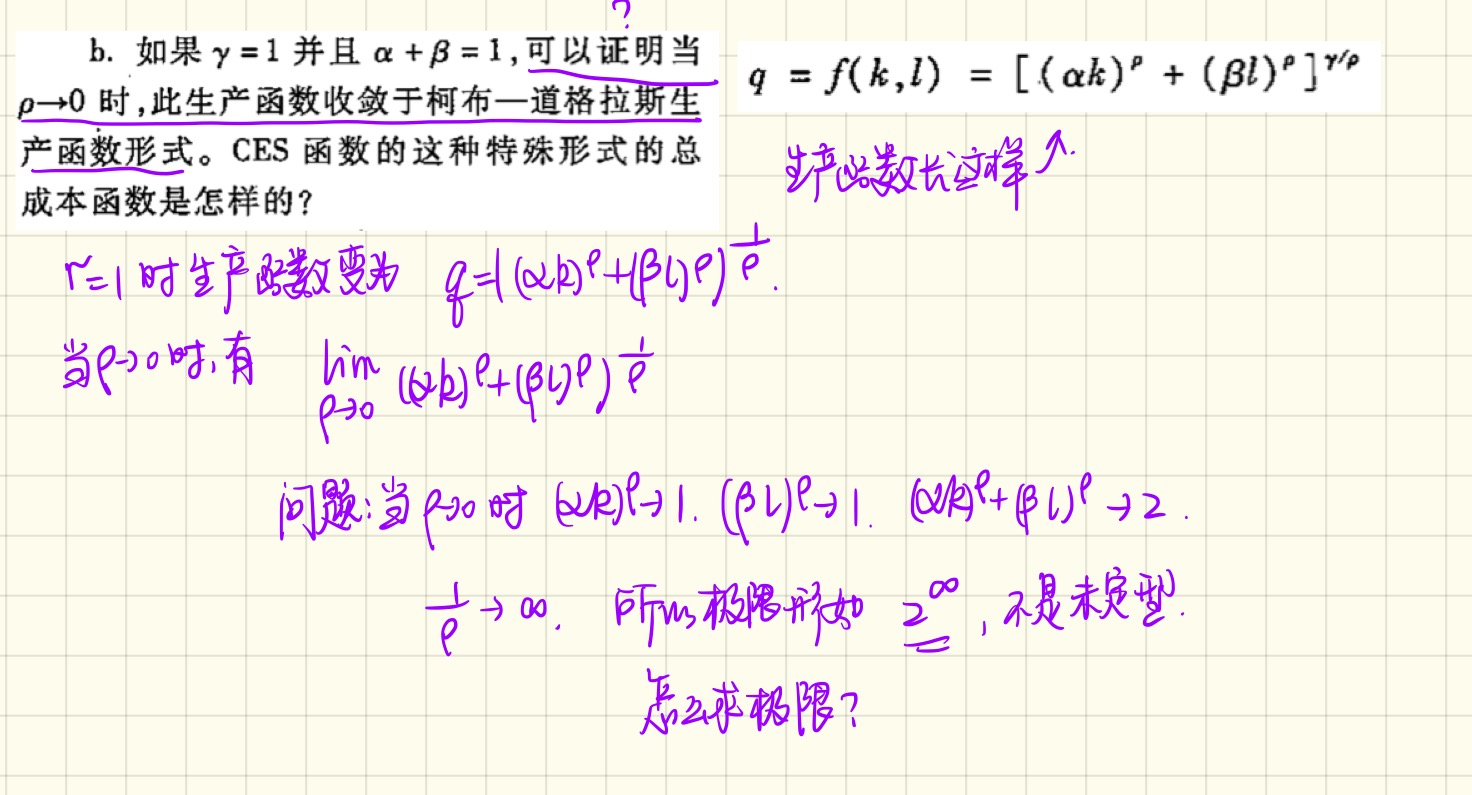 ?
b. 如果 γ = 1 并且 α + β = 1,可以证明当
ρ→0 时,此生产函数收敛于柯布—道格拉斯生
产函数形式。CES 函数的这种特殊形式的总
成本函数是怎样的?
q = f(k,l) = [(αk)^ρ + (βl)^ρ]^{γ/ρ}
生产函数长这样↑.
r=1 时生产函数变为 q=((αk)^ρ+(βl)^ρ)^{1/ρ}.
当ρ→0时,有 lim_{ρ→0} ((αk)^ρ+(βl)^ρ)^{1/ρ}
问题:当ρ→0时 (αk)^ρ→1. (βl)^ρ→1. (αk)^ρ+(βl)^ρ→2.
1/ρ→∞. 所以极限形如 2^∞, 不是未定型.
怎么求极限?